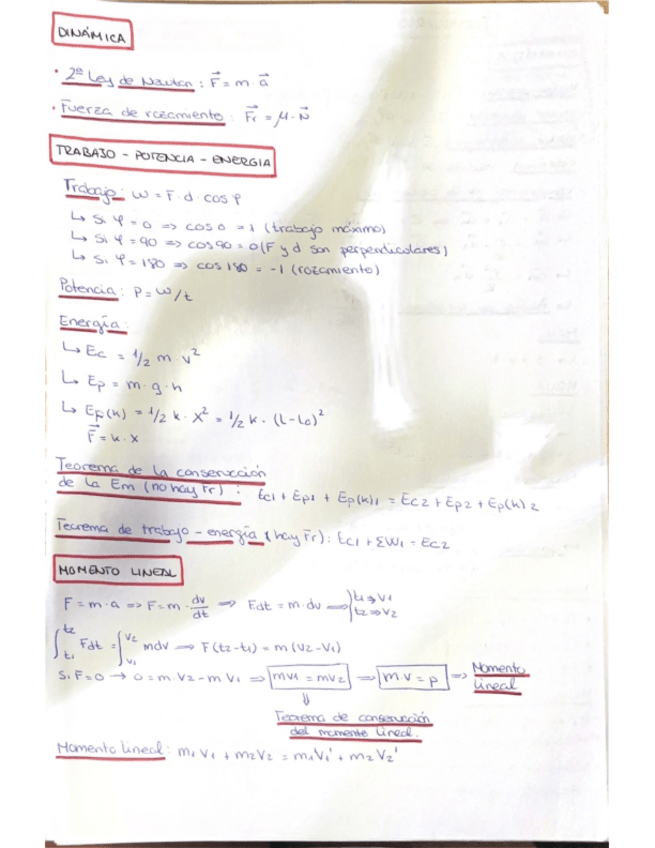 DINÁMICA
· 2ª Ley de Newton : F⃗ = m · a⃗
· Fuerza de rozamiento : F⃗r = μ · N⃗
TRABAJO - POTENCIA - ENERGIA
Trabajo: W = F · d · cos φ
↳ Si φ = 0 => cos 0 = 1 (trabajo máximo)
↳ Si φ = 90 => cos 90 = 0 (F y d son perpendiculares)
↳ Si φ = 180 => cos 180 = -1 (rozamiento)
Potencia: P = W/t
Energía:
↳ Ec = 1/2 m · v²
↳ Ep = m · g · h
↳ Ep(k) = 1/2 k · x² = 1/2 k · (l - l₀)²
F⃗ = k · x
Teorema de la conservación
de la Em (no hay Fr) : Ec1 + Ep1 + Ep(k)1 = Ec2 + Ep2 + Ep(k)2
Teorema de trabajo - energía (hay Fr): Ec1 + ΣW1 = Ec2
MOMENTO LINEAL
F = m · a => F = m · dv/dt => F·dt = m · dv => } t1 => V1
t2 => V2
∫t1^t2 Fdt = ∫v1^v2 mdv => F (t2 - t1) = m (V2 - V1)
Si F = 0 → 0 = m · V2 - m V1 => mv1 = mv2 => m · v = p => Momento
lineal
⇓
Teorema de conservación
del momento lineal.
Momento lineal: m1 V1 + m2 V2 = m1 V1' + m2 V2'